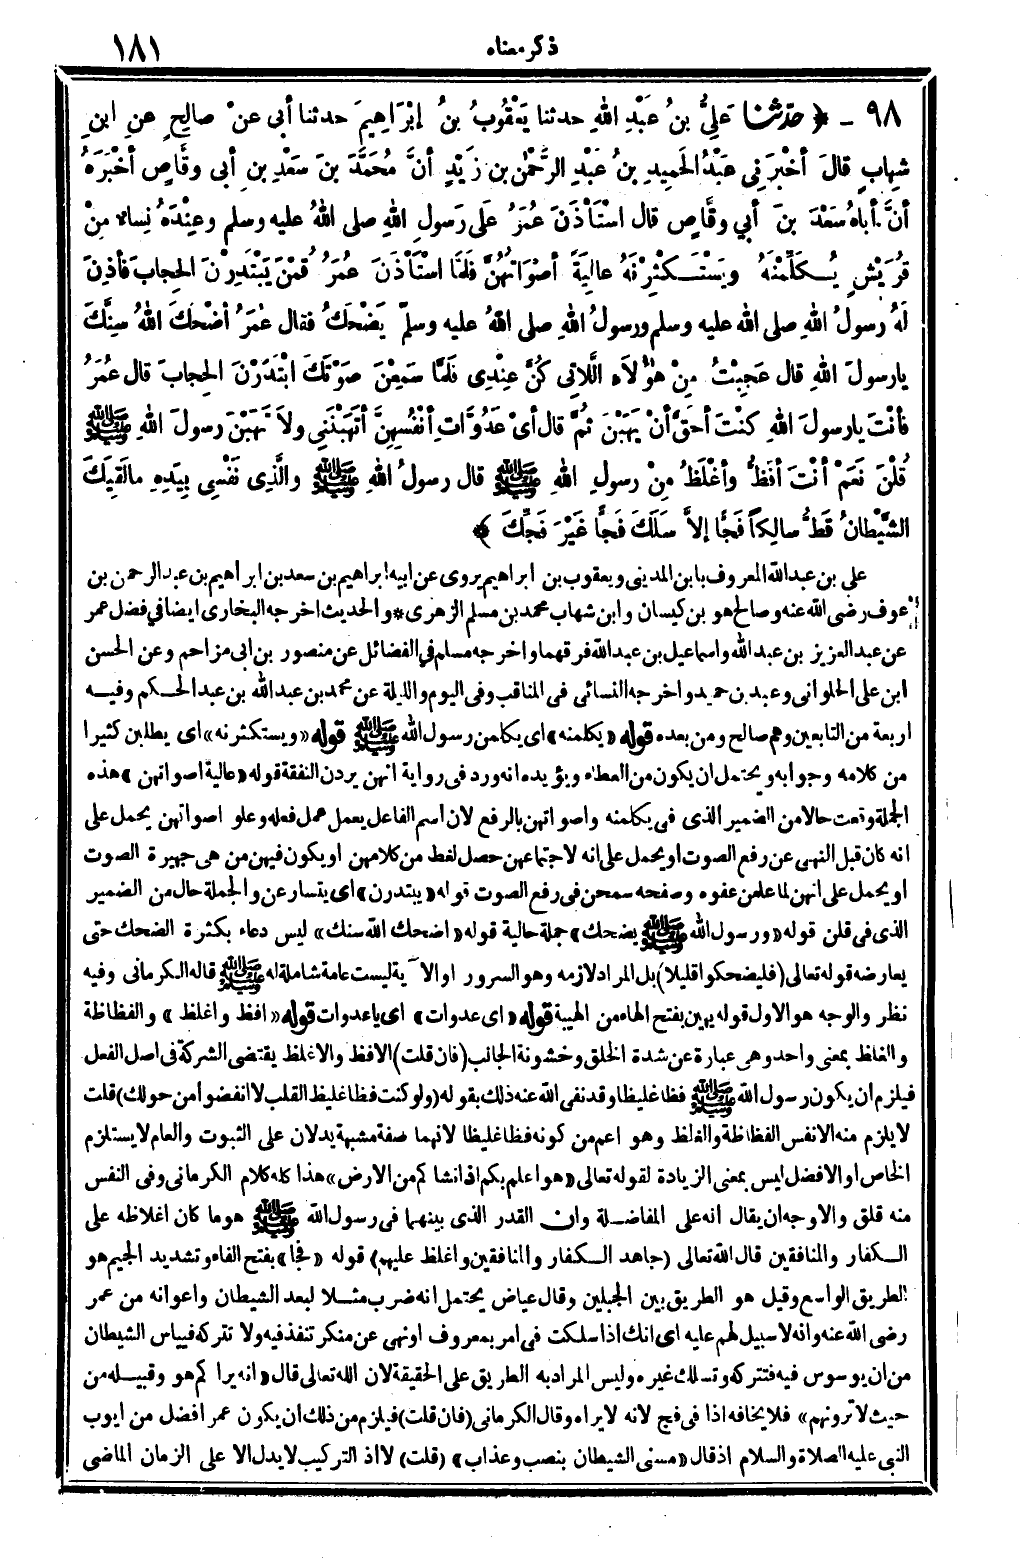 ذكر معناه ١٨١
٩٨ - ﴿ حدّثنا عَلِيُّ بنُ عَبْدِ اللهِ حدثنا يَعْقُوبُ بنُ إبْرَاهِيمَ حدثنا أبي عنْ صالِحٍ عنِ ابنِ
شِهابٍ قالَ أخْبَرَنِي عَبْدُ الحَمِيدِ بنُ عَبْدِ الرَّحْمٰنِ بنِ زَيْدٍ أنَّ مُحَمَّدَ بنَ سَعْدِ بنِ أبى وقَّاصٍ أخْبَرَهُ
أنَّ أباهُ سَعْدَ بنَ أبي وقَّاصٍ قال اسْتَأْذَنَ عُمَرُ عَلَى رَسولِ اللهِ صلى اللهُ عليه وسلم وعِنْدَهُ نِساءٌ مِنْ
قُرَيْشٍ يُكَلِّمْنَهُ ويَسْتَكْثِرْنَهُ عالِيَةً أصْوَاتُهُنَّ فَلَمَّا اسْتَأْذَنَ عُمَرُ قُمْنَ يَبْتَدِرْنَ الحِجابَ فأذِنَ
لَهُ رسولُ اللهِ صلى الله عليه وسلم ورسولُ اللهِ صلى اللهُ عليه وسلَّم يَضْحَكُ فقال عُمَرُ أضْحَكَ اللهُ سِنَّكَ
يارسولَ اللهِ قال عَجِبْتُ مِنْ هَؤُلاَءِ اللَّاتِى كُنَّ عِنْدِى فَلَمَّا سَمِعْنَ صَوْتَكَ ابْتَدَرْنَ الحِجابَ قال عُمَرُ
فأنْتَ يارسولَ اللهِ كنْتَ أحَقَّ أنْ يَهَبْنَ ثُمَّ قال أىْ عَدُوَّاتِ أنْفُسِهِنَّ أتَهَبْنَنِى ولاَ تَهَبْنَ رسولَ اللهِ ﷺ
قُلْنَ نَعَمْ أنْتَ أفَظُّ وأغْلَظُ مِنْ رسولِ اللهِ ﷺ قال رسولُ اللهِ ﷺ والَّذِى نَفْسِى بِيَدِهِ مالَقِيَكَ
الشَّيْطانُ قَطُّ سالِكاً فَجًّا إلاَّ سَلَكَ فَجًّا غَيْرَ فَجِّكَ ﴾
على بن عبدالله المعروف بابن المدينى ويعقوب بن ابراهيم يروى عن ابيه ابراهيم بن سعد بن ابراهيم بن عبدالرحمن بن
عوف رضى الله عنه وصالح هو بن كيسان وابن شهاب محمد بن مسلم الزهرى * والحديث اخرجه البخارى ايضا فى فضل عمر
عن عبدالعزيز بن عبدالله واسماعيل بن عبدالله فرقهما واخرجه مسلم في الفضائل عن منصور بن ابى مزاحم وعن الحسن
ابن على الحلوانى وعبد بن حميد واخرجه النسائى فى المناقب وفى اليوم والليلة عن محمد بن عبدالله بن عبدالحكم وفيه
اربعة من التابعين وهم صالح ومن بعده قوله «يكلمنه» اى يكلمن رسول الله ﷺ قوله «ويستكثرنه» اى يطلبن كثيرا
من كلامه وجوابه ويحتمل ان يكون من العطاء ويؤيده انه ورد فى رواية انهن يردن النفقة قوله «عالية اصواتهن» هذه
الجملة وقعت حالا من الضمير الذى فى يكلمنه واصواتهن بالرفع لان أسم الفاعل يعمل عمل فعله وعلو اصواتهن يحمل على
انه كان قبل النهى عن رفع الصوت او يحمل على انه لاجتماعهن حصل لفط من كلامهن او يكون فيهن من هى جهيرة الصوت
او يحمل على انهن لما علمن عفوه وصفحه سمحن فى رفع الصوت قوله «يبتدرن» اى يتسارعن والجملة حال من الضمير
الذى فى قلن قوله «ورسول الله ﷺ يضحك» جملة حالية قوله «اضحك الله سنك» ليس دعاء بكثرة الضحك حتى
يعارضه قوله تعالى (فليضحكوا قليلا) بل المراد لازمه وهو السرور او الآية ليست عامة شاملة له ﷺ قاله الكرمانى وفيه
نظر والوجه هو الاول قوله يهبن بفتح الهاء من الهيبة قوله «اى عدوات» اى ياعدوات قوله «افظ واغلظ» والفظاظة
والغلظ بمعنى واحد وهى عبارة عن شدة الخلق وخشونة الجانب (فان قلت) الافظ والاغلظ يقتضى الشركة فى اصل الفعل
فيلزم ان يكون رسول الله ﷺ فظا غليظا وقد نفى الله عنه ذلك بقوله (ولو كنت فظا غليظ القلب لا انفضوا من حولك) قلت
لا يلزم منه الا نفس الفظاظة والغلظ وهو اعم من كونه فظا غليظا لانهما صفة مشبهة يدلان على الثبوت والعام لا يستلزم
الخاص او الافضل ليس بمعنى الزيادة لقوله تعالى «هو اعلم بكم اذ انشاكم من الارض» هذا كله كلام الكرمانى وفى النفس
منه قلق والاوجه ان يقال انه على المفاضلة وان القدر الذى بينهما فى رسول الله ﷺ هو ما كان اغلاظه على
الكفار والمنافقين قال الله تعالى (جاهد الكفار والمنافقين واغلظ عليهم) قوله «فجا» بفتح الفاء وتشديد الجيم هو
الطريق الواسع وقيل هو الطريق بين الجبلين وقال عياض يحتمل انه ضرب مثلا لبعد الشيطان واعوانه من عمر
رضى الله عنه وانه لا سبيل لهم عليه اى انك اذا سلكت فى امر بمعروف او نهى عن منكر تنفذ فيه ولا تتركه فيياس الشيطان
من ان يوسوس فيه فتتركه وتسلك غيره وليس المراد به الطريق على الحقيقة لان الله تعالى قال «انه يراكم هو وقبيله من
حيث لا ترونهم» فلا يخافه اذا فى فج لانه لا يراه وقال الكرمانى (فان قلت) فيلزم من ذلك ان يكون عمر افضل من ايوب
النبى عليه الصلاة والسلام اذ قال «مسنى الشيطان بنصب وعذاب» (قلت) لا اذ التركيب لا يدل الا على الزمان الماضى